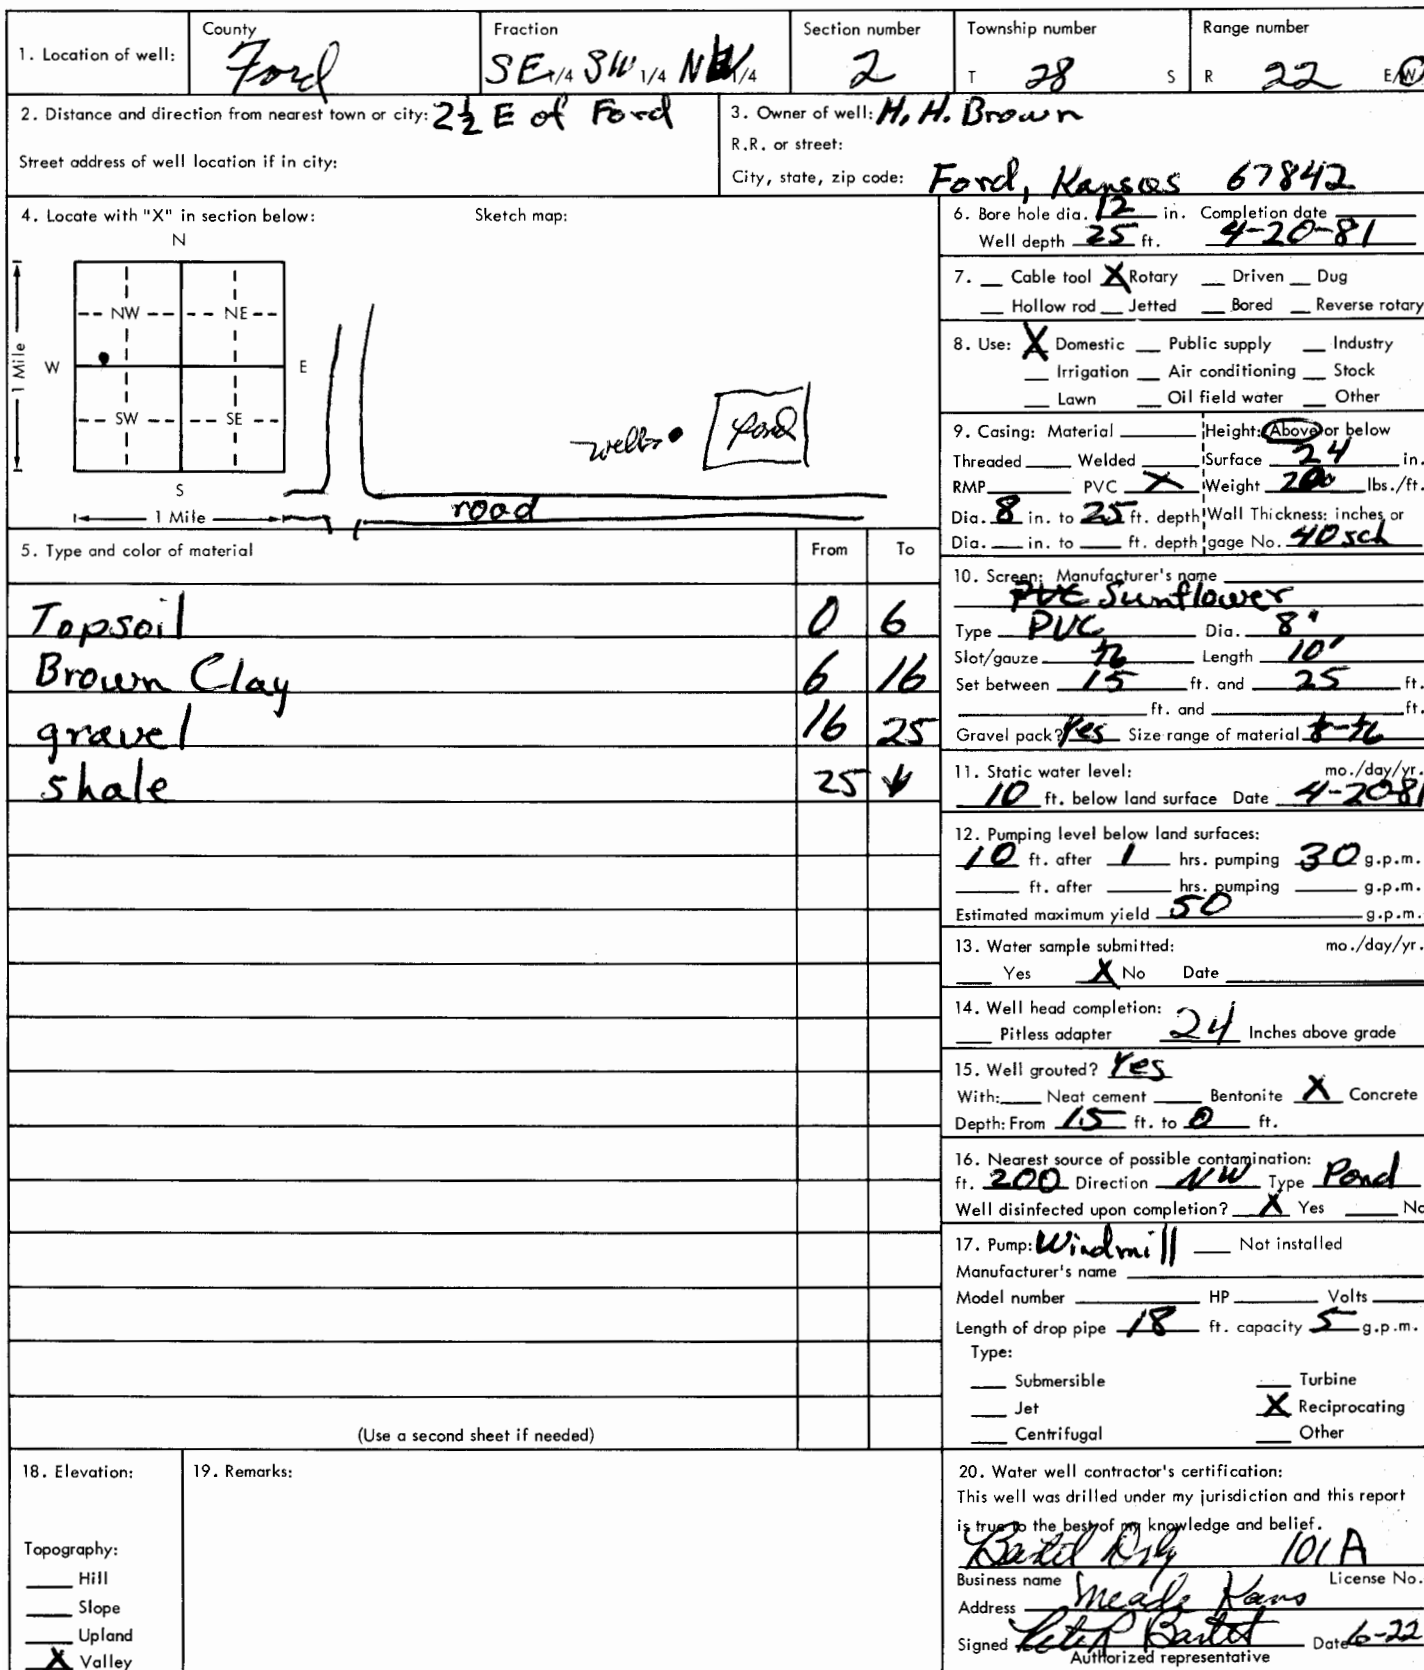 1. Location of well: County Ford Fraction SE 1/4 SW 1/4 NW 1/4 Section number 2 Township number T 28 S Range number R 22 E/W
2. Distance and direction from nearest town or city: 2½ E of Ford
Street address of well location if in city:
3. Owner of well: H. H. Brown
R.R. or street:
City, state, zip code: Ford, Kansas 67842
4. Locate with "X" in section below: Sketch map:
N
NW NE
W E
1 Mile
SW SE
S
1 Mile
well
Pond
road
5. Type and color of material From To
Topsoil 0 6
Brown Clay 6 16
gravel 16 25
shale 25 ↓
(Use a second sheet if needed)
6. Bore hole dia. 12 in. Completion date
Well depth 25 ft. 4-20-81
7. __ Cable tool X Rotary __ Driven __ Dug
__ Hollow rod __ Jetted __ Bored __ Reverse rotary
8. Use: X Domestic __ Public supply __ Industry
__ Irrigation __ Air conditioning __ Stock
__ Lawn __ Oil field water __ Other
9. Casing: Material ____ Height: Above or below
Threaded ____ Welded ____ Surface 24 in.
RMP ____ PVC X Weight 200 lbs./ft.
Dia. 8 in. to 25 ft. depth Wall Thickness: inches or
Dia. ___ in. to ___ ft. depth gage No. 40 sch
10. Screen: Manufacturer's name
PVC Sunflower
Type PVC Dia. 8"
Slot/gauze Length 10'
Set between 15 ft. and 25 ft.
____ ft. and ____ ft.
Gravel pack? Yes Size range of material
11. Static water level: mo./day/yr.
10 ft. below land surface Date 4-20-81
12. Pumping level below land surfaces:
10 ft. after 1 hrs. pumping 30 g.p.m.
____ ft. after ____ hrs. pumping ____ g.p.m.
Estimated maximum yield 50 g.p.m.
13. Water sample submitted: mo./day/yr.
__ Yes X No Date
14. Well head completion:
__ Pitless adapter 24 Inches above grade
15. Well grouted? Yes
With: __ Neat cement __ Bentonite X Concrete
Depth: From 15 ft. to 0 ft.
16. Nearest source of possible contamination:
ft. 200 Direction NW Type Pond
Well disinfected upon completion? X Yes __ No
17. Pump: Windmill __ Not installed
Manufacturer's name
Model number ____ HP ____ Volts
Length of drop pipe 18 ft. capacity 5 g.p.m.
Type:
__ Submersible __ Turbine
__ Jet X Reciprocating
__ Centrifugal __ Other
18. Elevation:
Topography:
__ Hill
__ Slope
__ Upland
X Valley
19. Remarks:
20. Water well contractor's certification:
This well was drilled under my jurisdiction and this report
is true to the best of my knowledge and belief.
101 A
Business name License No.
Address Meade Kans
Signed Date 6-22
Authorized representative